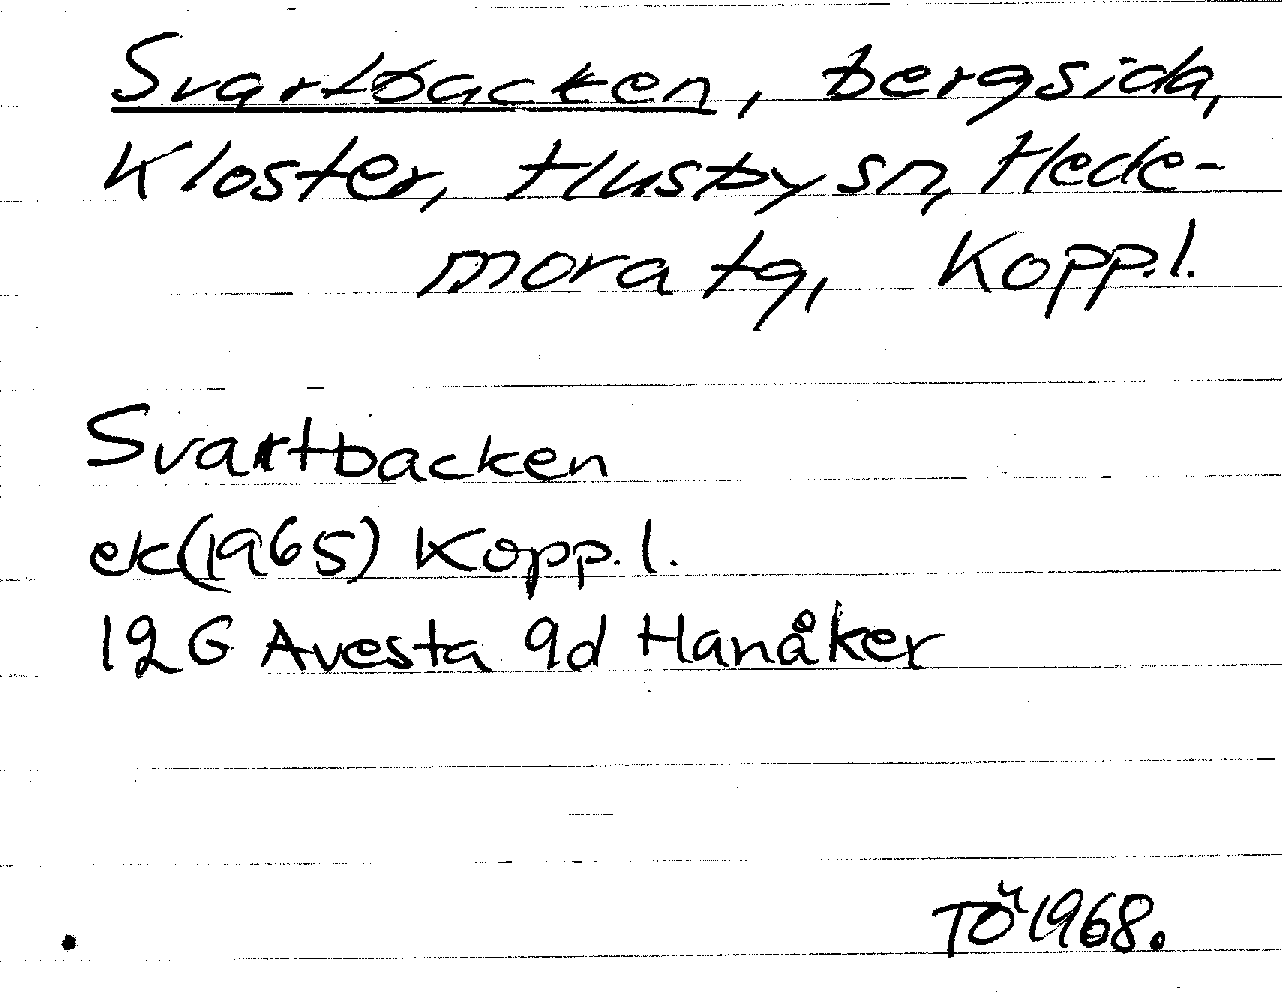 Svartbacken, bergsida,
Kloster, Husby sn, Hede-
mora tg, Kopp.l.
Svartbacken
ek(1965) Kopp.l.
12G Avesta 9d Hanåker
TÖ 1968.